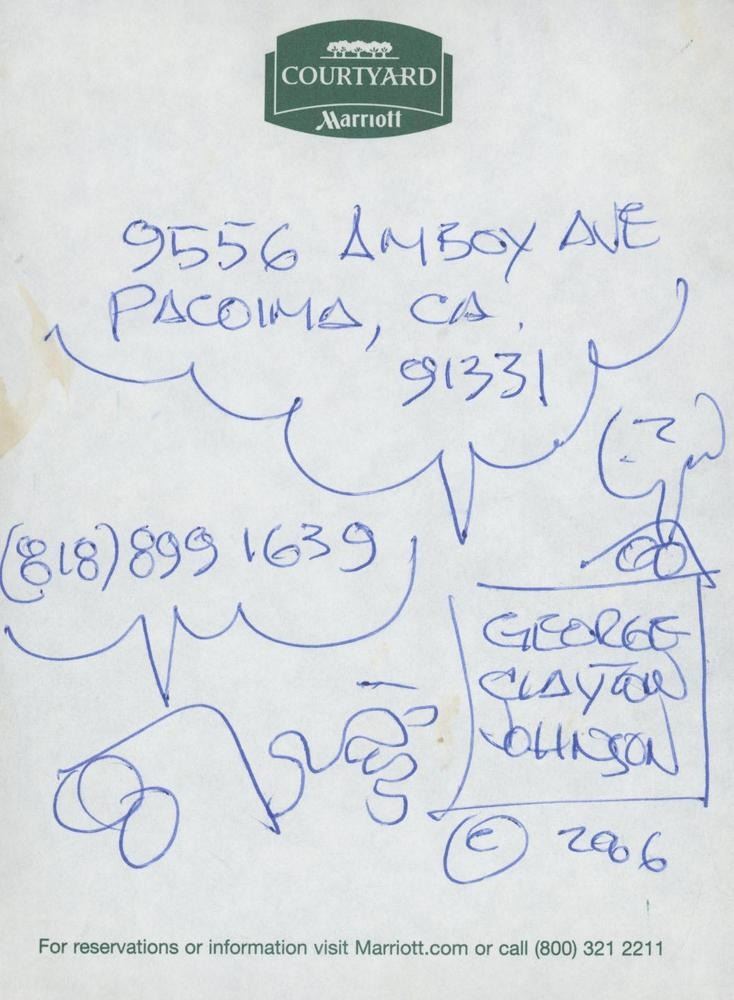 COURTYARD
Marriott
9556 AMBOY AVE
PACOIMA, CA.
91331
(818) 899 1639
GEORGE
CLAYTON
JOHNSON
© 2006
For reservations or information visit Marriott.com or call (800) 321 2211